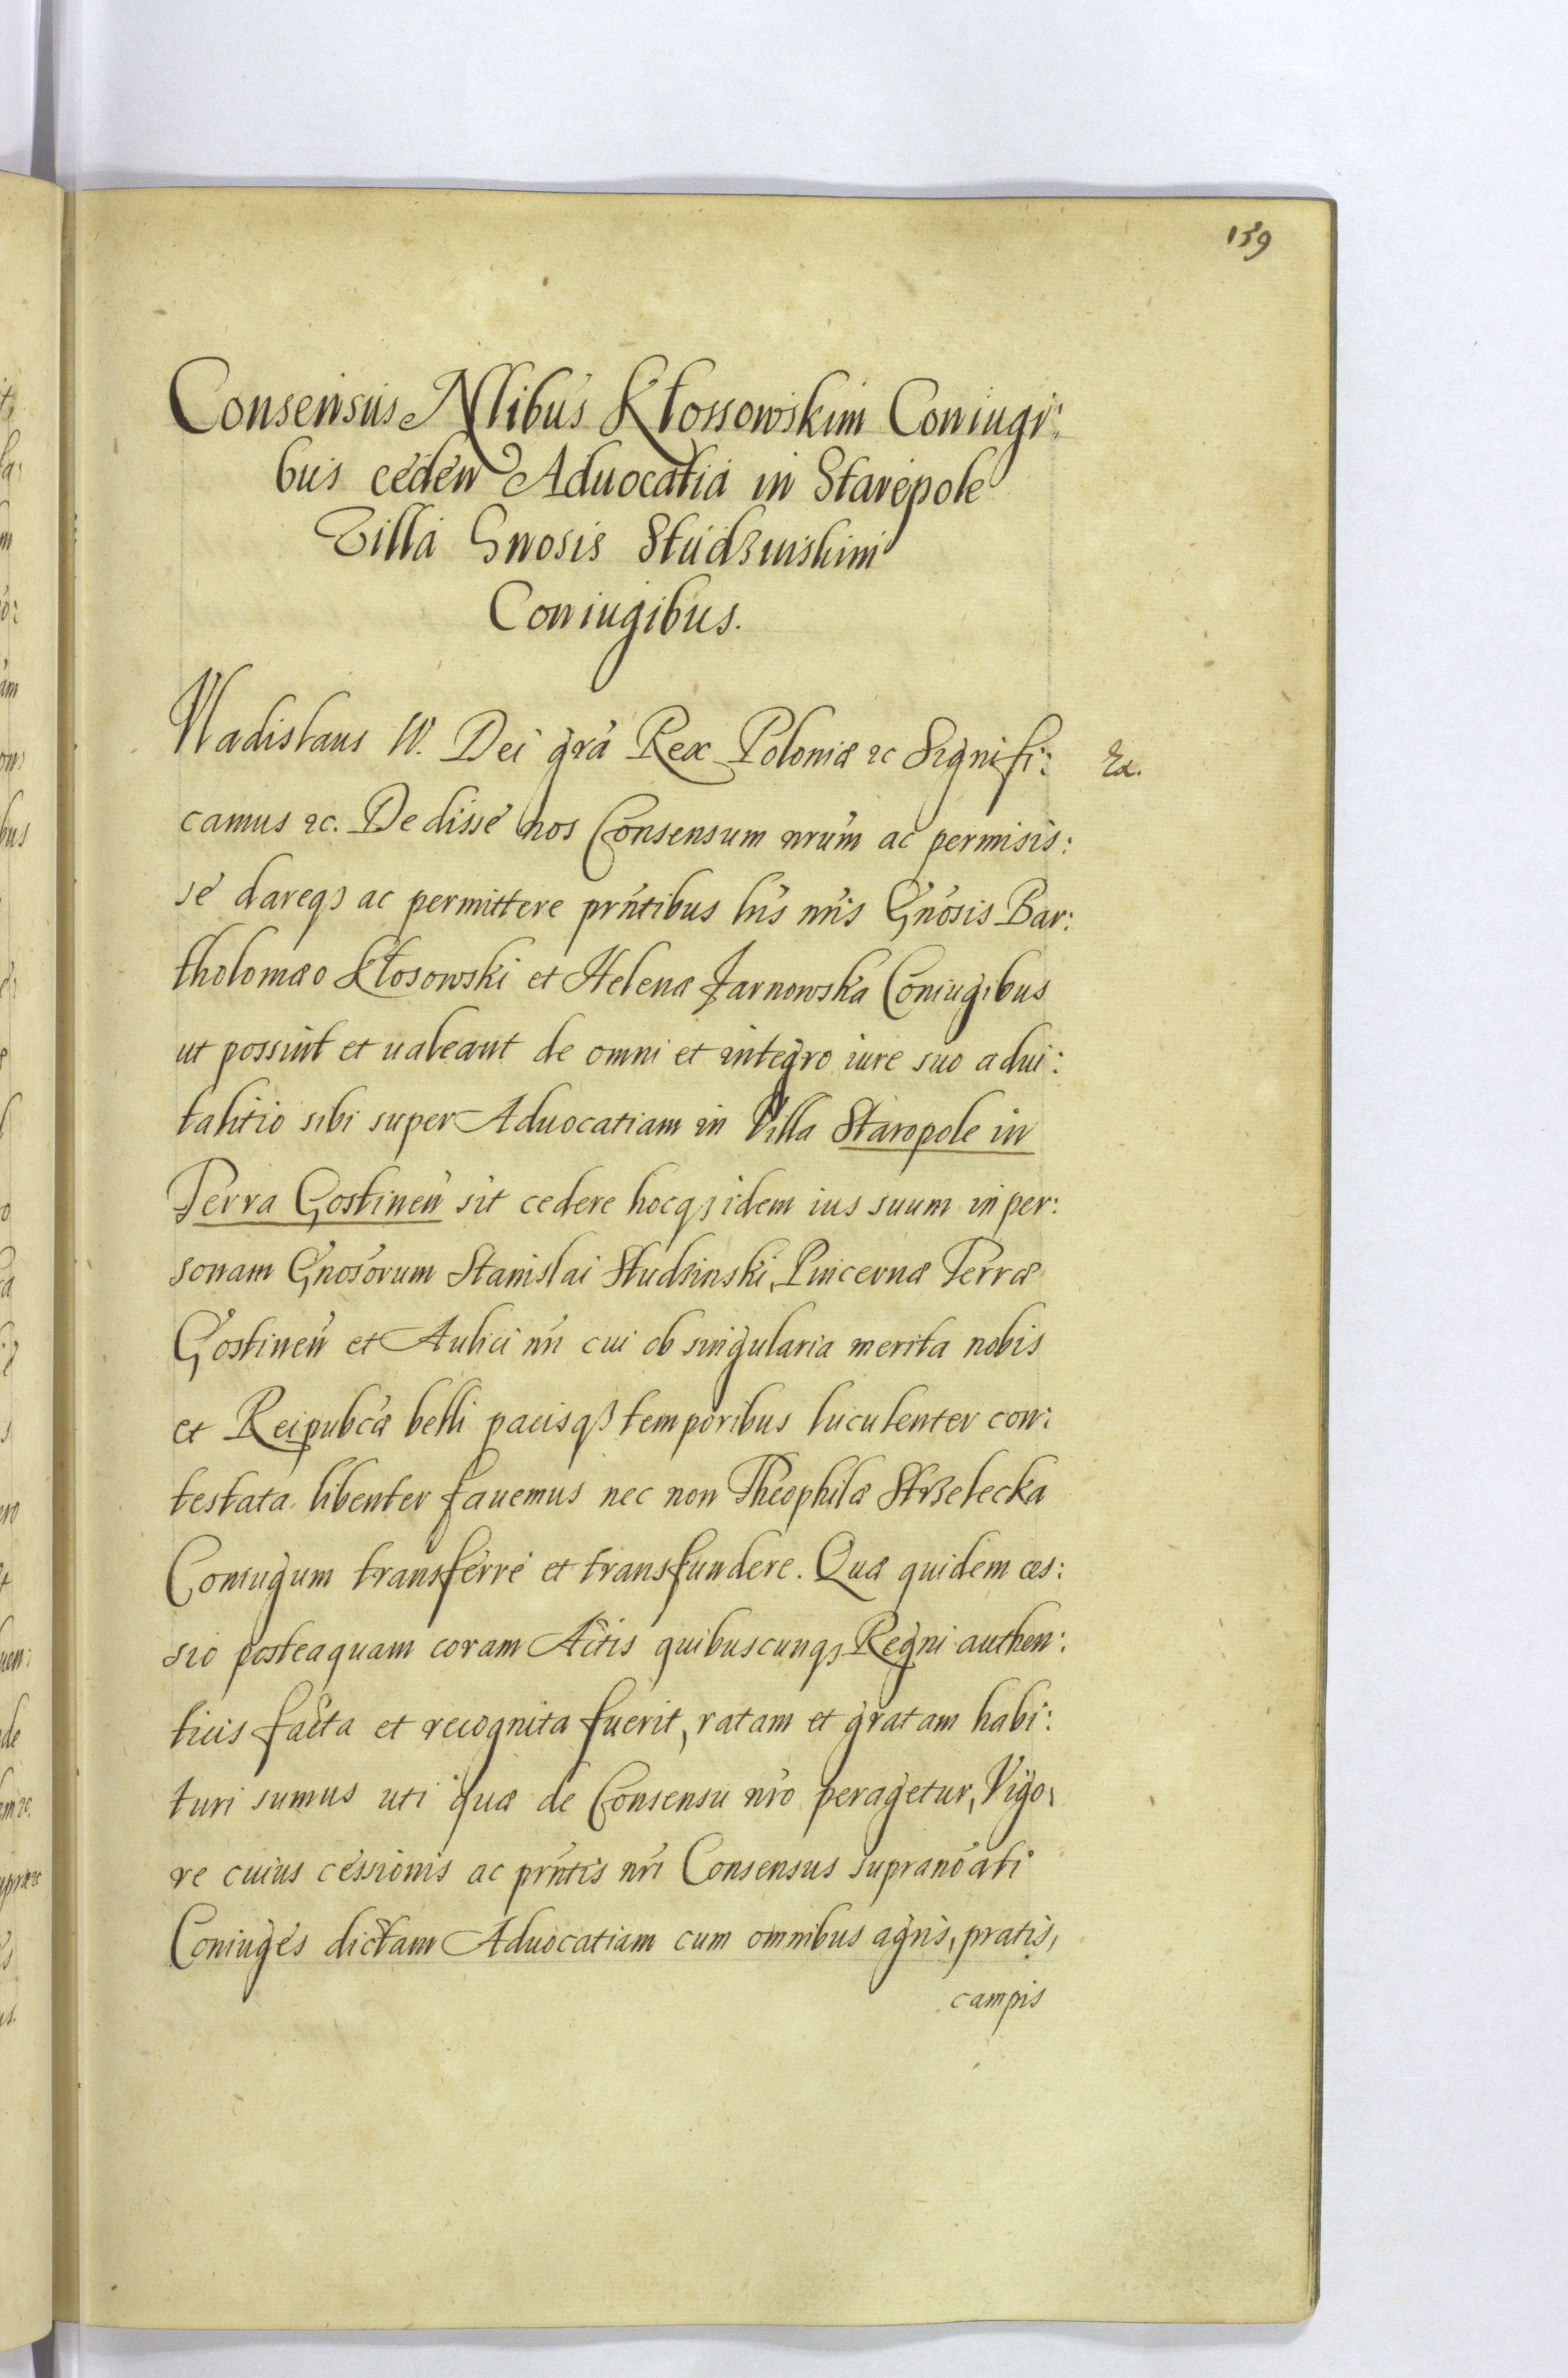 159
Consensus Nlibus Kłossowskim Coniugi:
bus ceden Aduocatia in Starepole
Villa Gnosis Studzinskim
Coniugibus.
Vladislaus IV. Dei gra Rex Poloniæ &c Signifi:
Ex.
camus &c. Dedisse nos Consensum nrum ac permisis:
se dareq3 ac permittere prntibus lris nris Gnosis Bar:
tholomæo Kłosowski et Helenæ Jarnowska Coniugibus
ut possint et ualeant de omni et integro iure suo adui:
talitio sibi super Aduocatiam in Villa Staropole in
Terra Gostinen sit cedere hocq3 idem ius suum in per:
sonam Gnosorum Stanislai Studzinski, Pincernæ Terræ
Gostinen et Aulici nri cui ob singularia merita nobis
et Reipubcæ belli pacisq3 temporibus luculenter con:
testata libenter fauemus nec non Theophilæ Strzelecka
Coniugum transferre et transfundere. Quæ quidem ces:
sio posteaquam coram Actis quibuscunq3 Regni authen:
ticis facta et recognita fuerit, ratam et gratam habi:
turi sumus uti quæ de Consensu nro peragetur, Vigo:
re cuius cessionis ac prntis nri Consensus supranoati
Coniuges dictam Aduocatiam cum omnibus agris, pratis,
campis